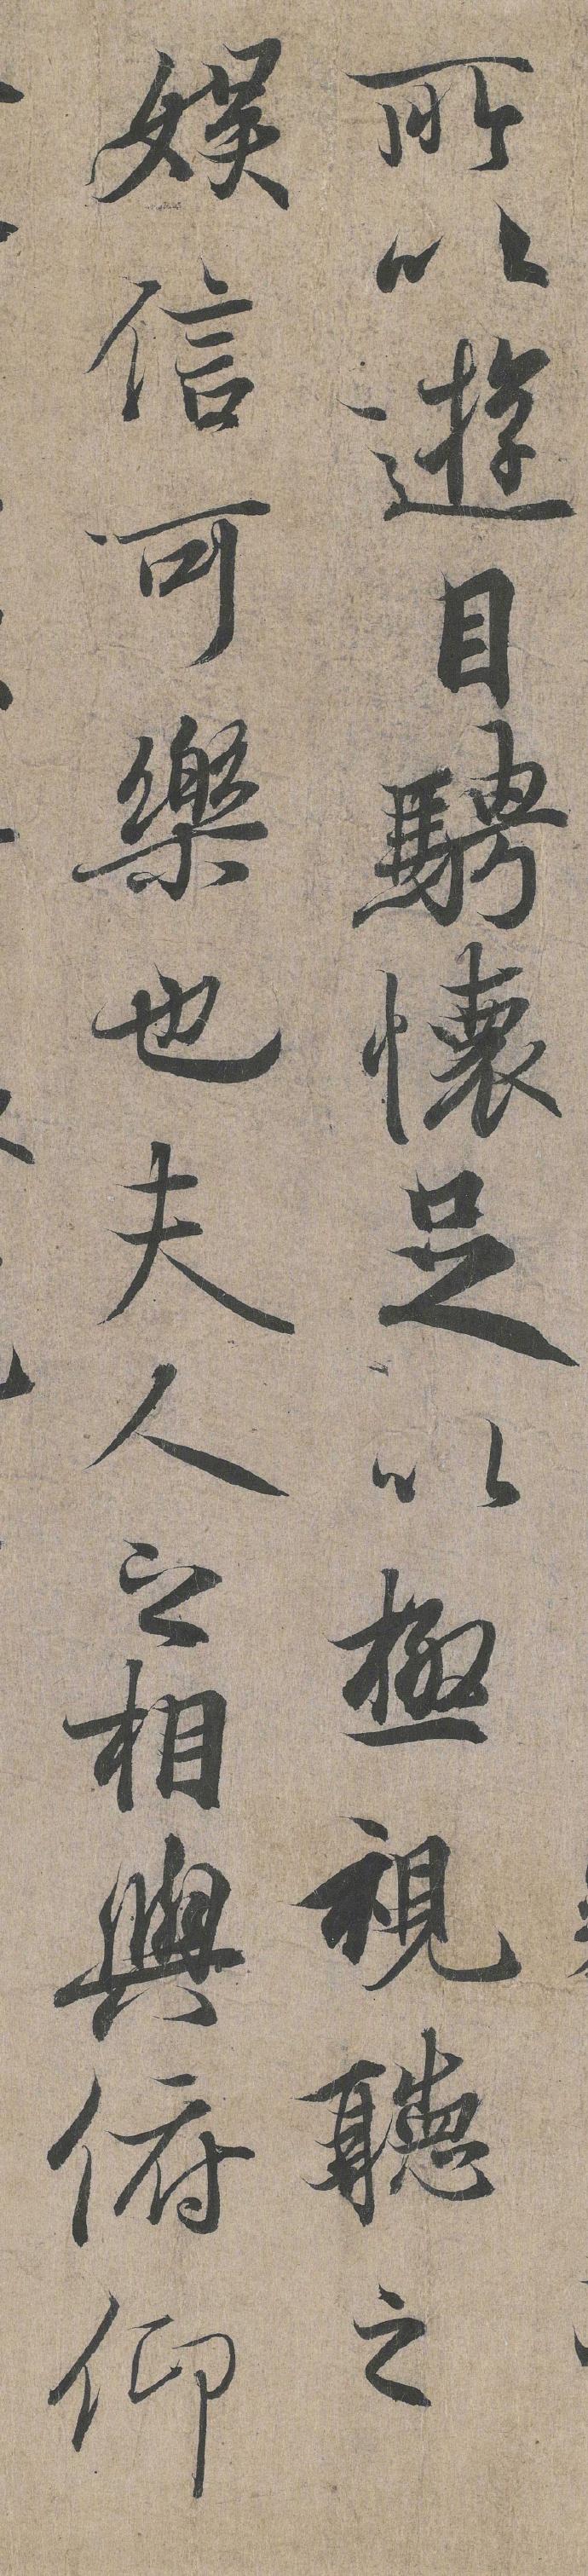 所以遊目騁懷足以極視聽之
娛信可樂也夫人之相與俯仰